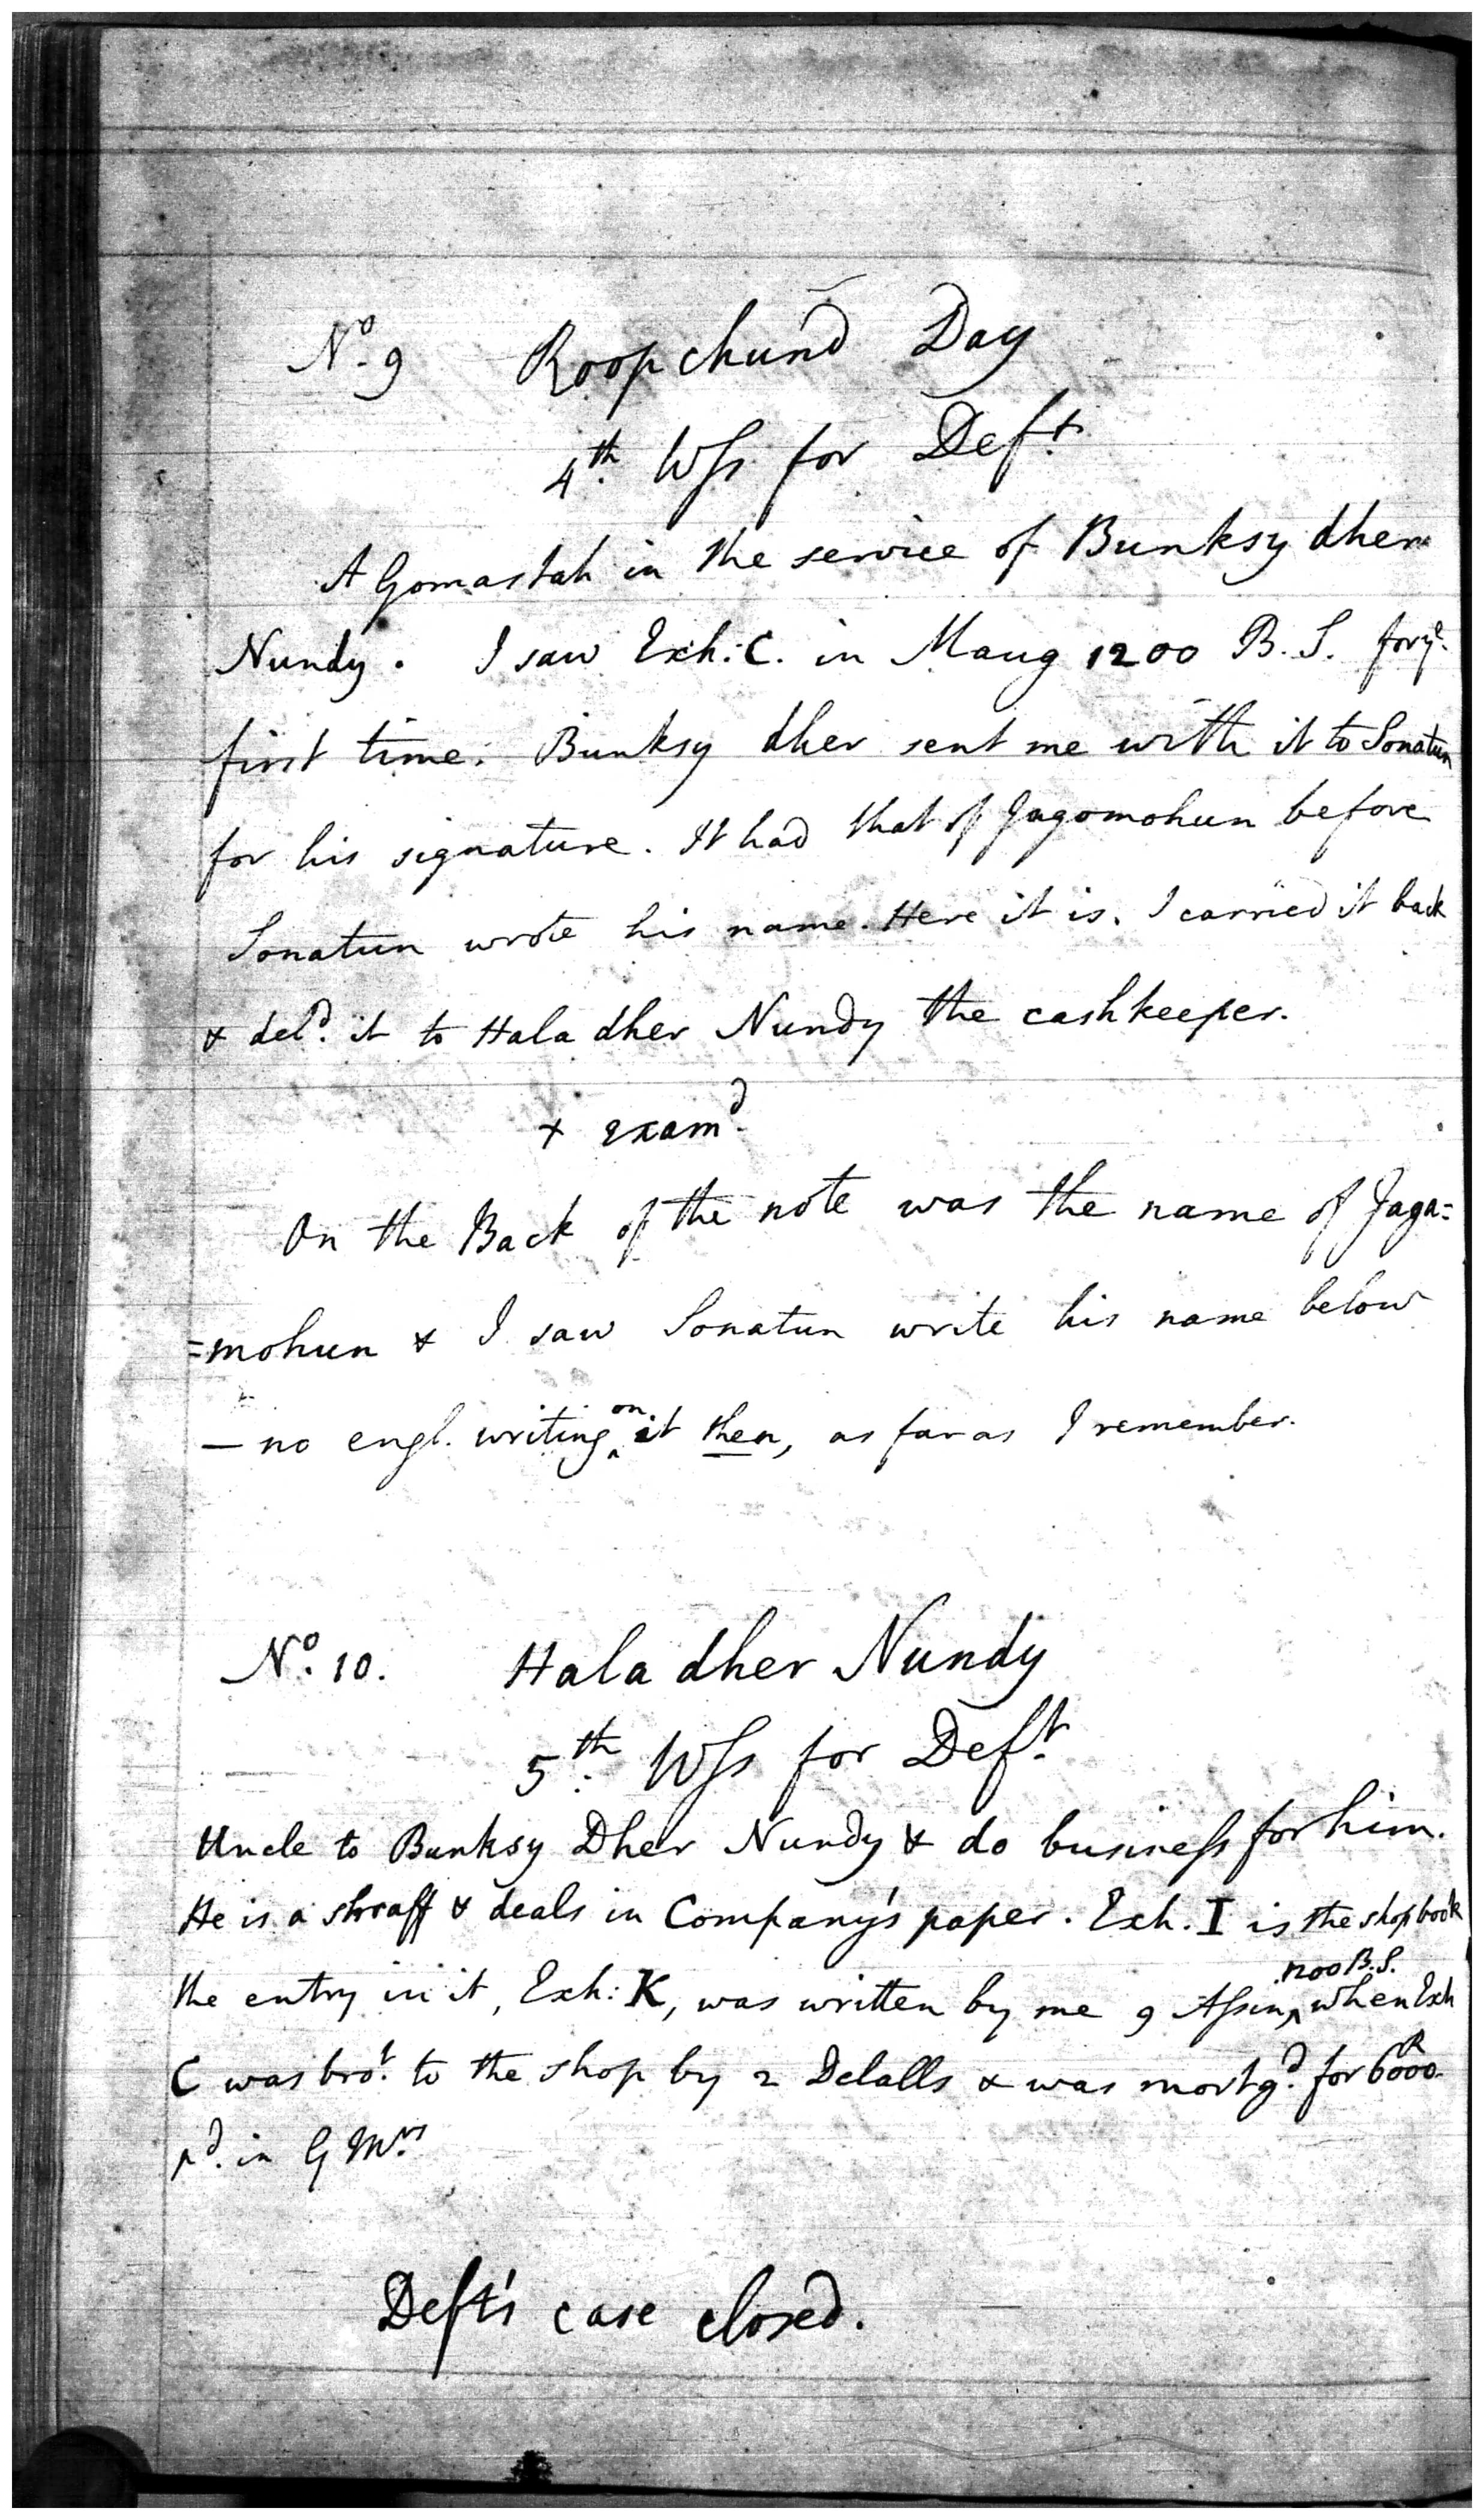 No. 9 Roopchund Day
4th. Wss for Deft.
A Gomastah in the service of Bunksy dher
Nundy. I saw Exh: C. in Maug 1200 B.S. for ye.
first time. Bunksy dher sent me with it to Sonatun
for his signature. It had that of Jagomohun before
Sonatun wrote his name. Here it is. I carried it back
& deld. it to Hala dher Nundy the cashkeeper.
+ examd.
On the Back of the note was the name of Jaga=
=mohun & I saw Sonatun write his name below
— no engl. writing on it then, as far as I remember.
No. 10. Hala dher Nundy
5th. Wss for Deft.
Uncle to Bunksy Dher Nundy & do business for him.
He is a shroff & deals in Company's paper. Exh. I is the shop book
the entry in it, Exh: K, was written by me 9 Assin, 1200 B.S. when Exh
C was brot. to the shop by 2 Delalls & was mortgd. for 6000 R
pd. in G Mrs.
Deft's case closed.